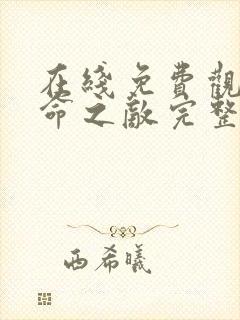 在綫免費觀
命之敵完整
西希曦